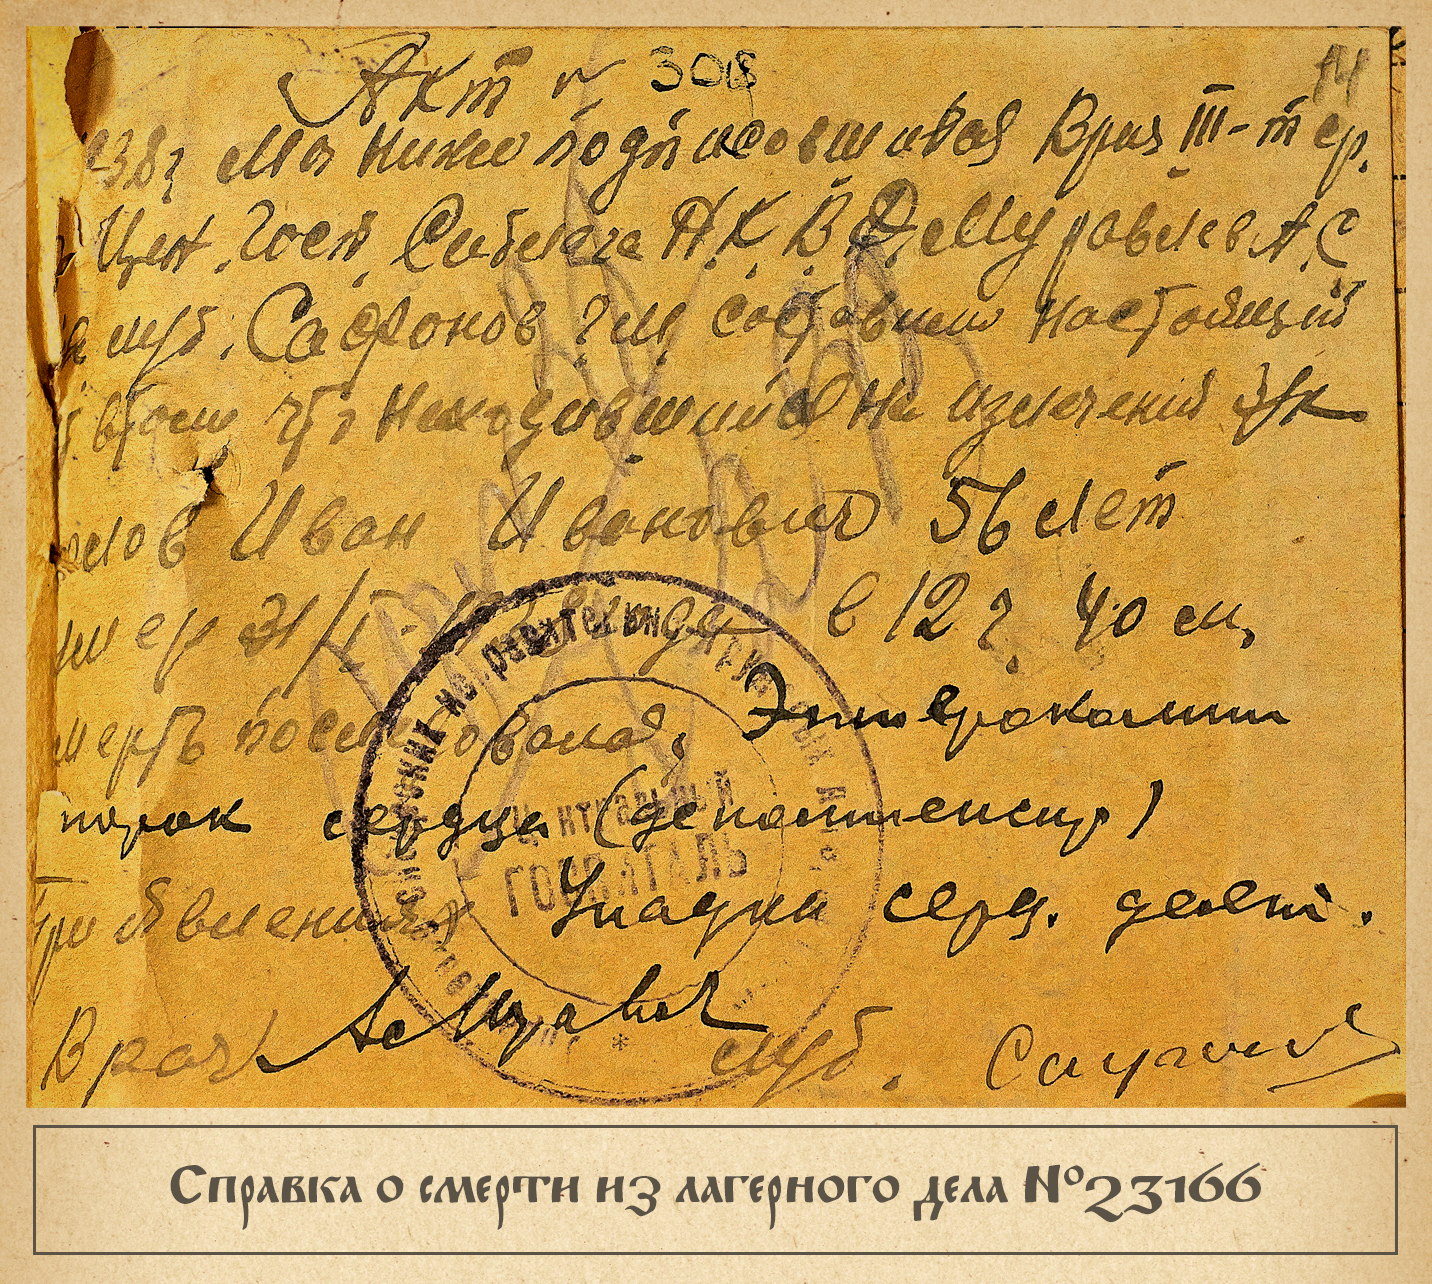 Акт № 308
14
938г Мы ниже подписовшияся Врач III-тер.
Цен. Госп. Сиблага Н.К.В.Д. Муравлев А.С
муб. Сафонов г.м составили настоящий
втом что находившийся на излечений з/к
лов Иван Иванович 56 лет
умер 31/ в 12 ч. 40 м,
мерть последовала,
порок сердца (декомпенсир)
При явлениях Упадка серд. деят.
Врач
Центральный
ГОСПИТАЛЬ
Справка о смерти из лагерного дела №23166